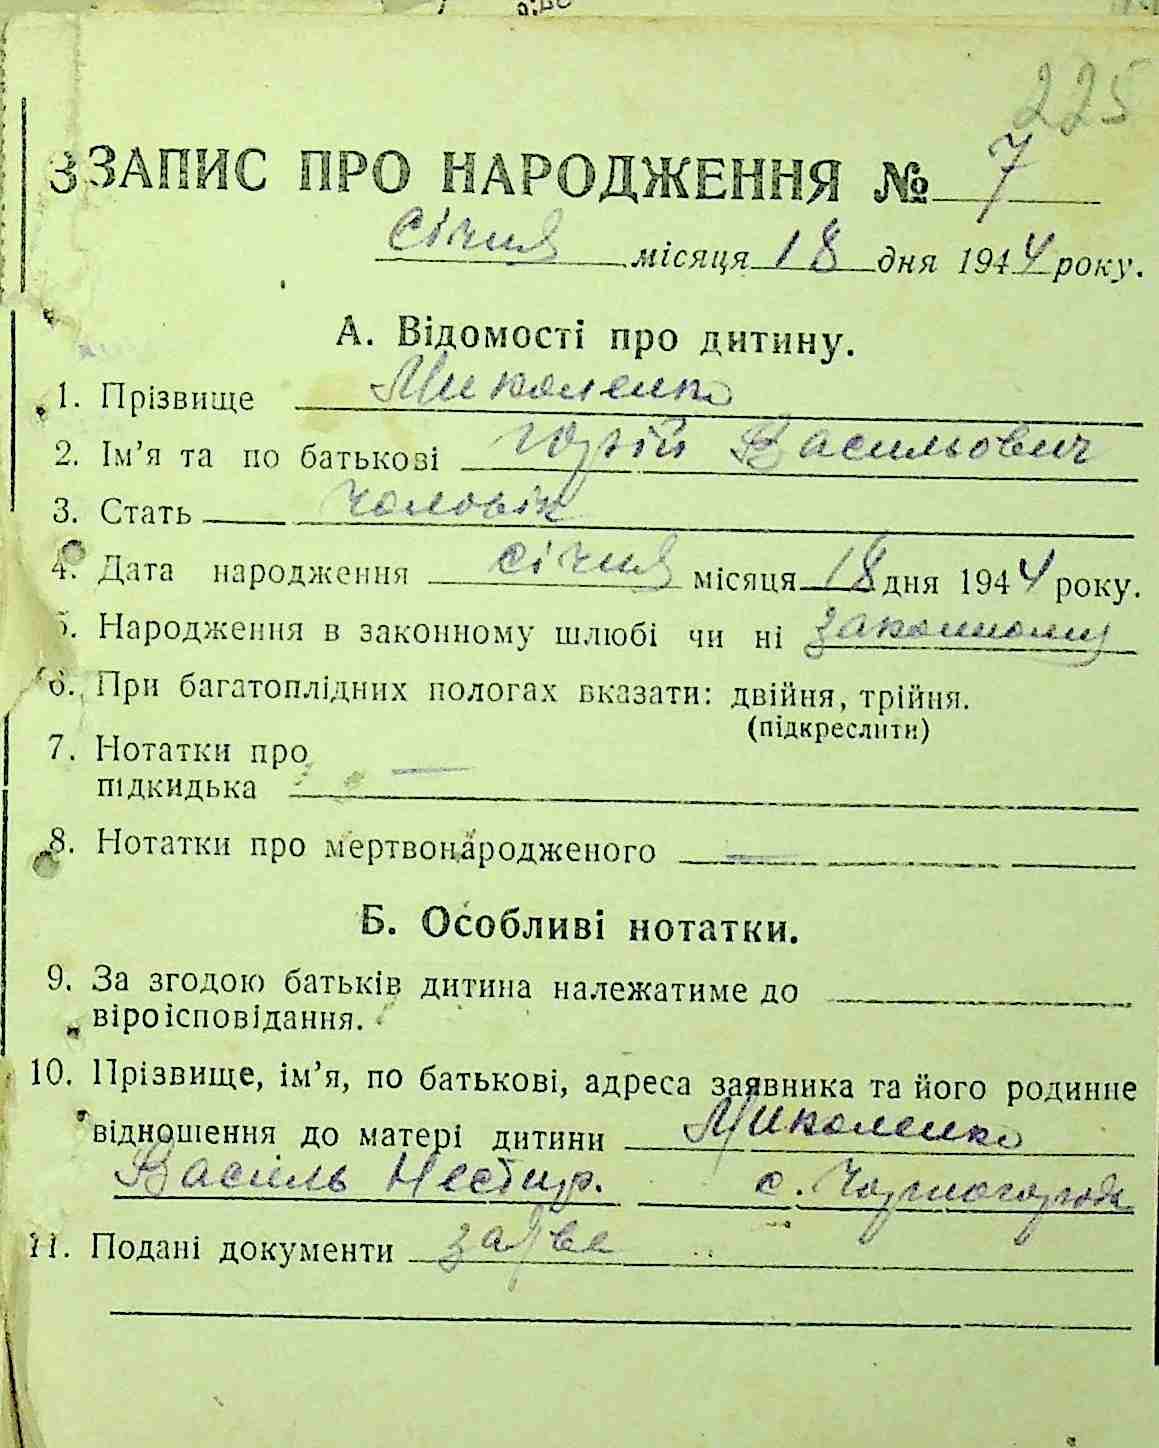 225
ЗЗАПИС ПРО НАРОДЖЕННЯ № 7
січня місяця 18 дня 1944 року.
А. Відомості про дитину.
1. Прізвище Миколенко
2. Ім’я та по батькові Юрій Васильович
3. Стать чоловік
4. Дата народження січня місяця 18 дня 1944 року.
5. Народження в законному шлюбі чи ні законному
6. При багатоплідних пологах вказати: двійня, трійня.
(підкреслити)
7. Нотатки про
підкидька —
8. Нотатки про мертвонародженого —
Б. Особливі нотатки.
9. За згодою батьків дитина належатиме до
віроісповідання.
10. Прізвище, ім’я, по батькові, адреса заявника та його родинне
відношення до матері дитини Миколенко
Василь Нестир. с.
11. Подані документи